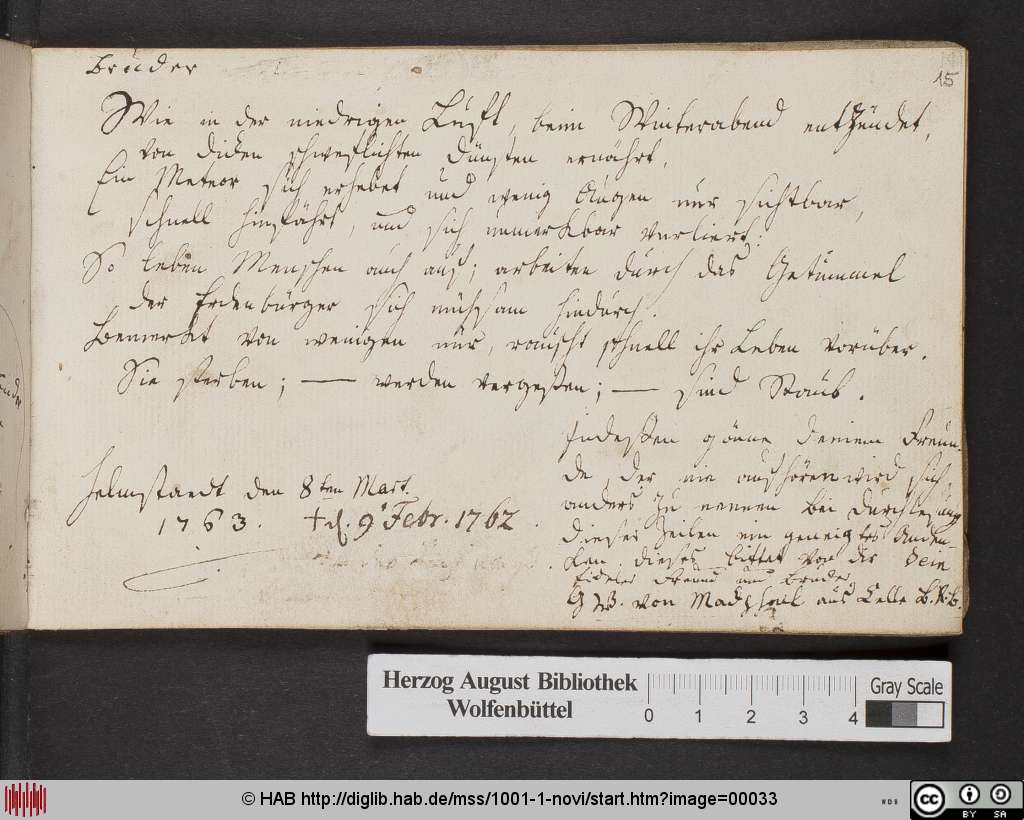 Bruder
15
Wie in der niedrigen Luft, beim Winterabend entzündet,
von dicken schweflichten Dünsten ernährt,
Ein Meteor sich erhebet und wenig Augen nur sichtbar,
schnell hinfährt, und sich unmerkbar verliert:
So leben Menschen auch aus; arbeiten durch das Getümmel
der Erdenbürger sich mühsam hindurch.
Bemerkt von wenigen nur, rauscht schnell ihr Leben vorüber.
Sie sterben; — werden vergeßen; — sind Staub.
Helmstaedt den 8ten Mart.
1763. † d. 9 Febr. 1762.
Indeßen gönne deinem Freun-
de, der nie aufhören wird sich
anders zu nennen bei Durchlesung
dieser Zeilen ein geneigtes Anden-
ken. dieses bittet von dir Dein
fideler Freund und Bruder
G W. von aus Celle
Herzog August Bibliothek
Wolfenbüttel
0 1 2 3 4
Gray Scale
© HAB http://diglib.hab.de/mss/1001-1-novi/start.htm?image=00033
cc BY SA